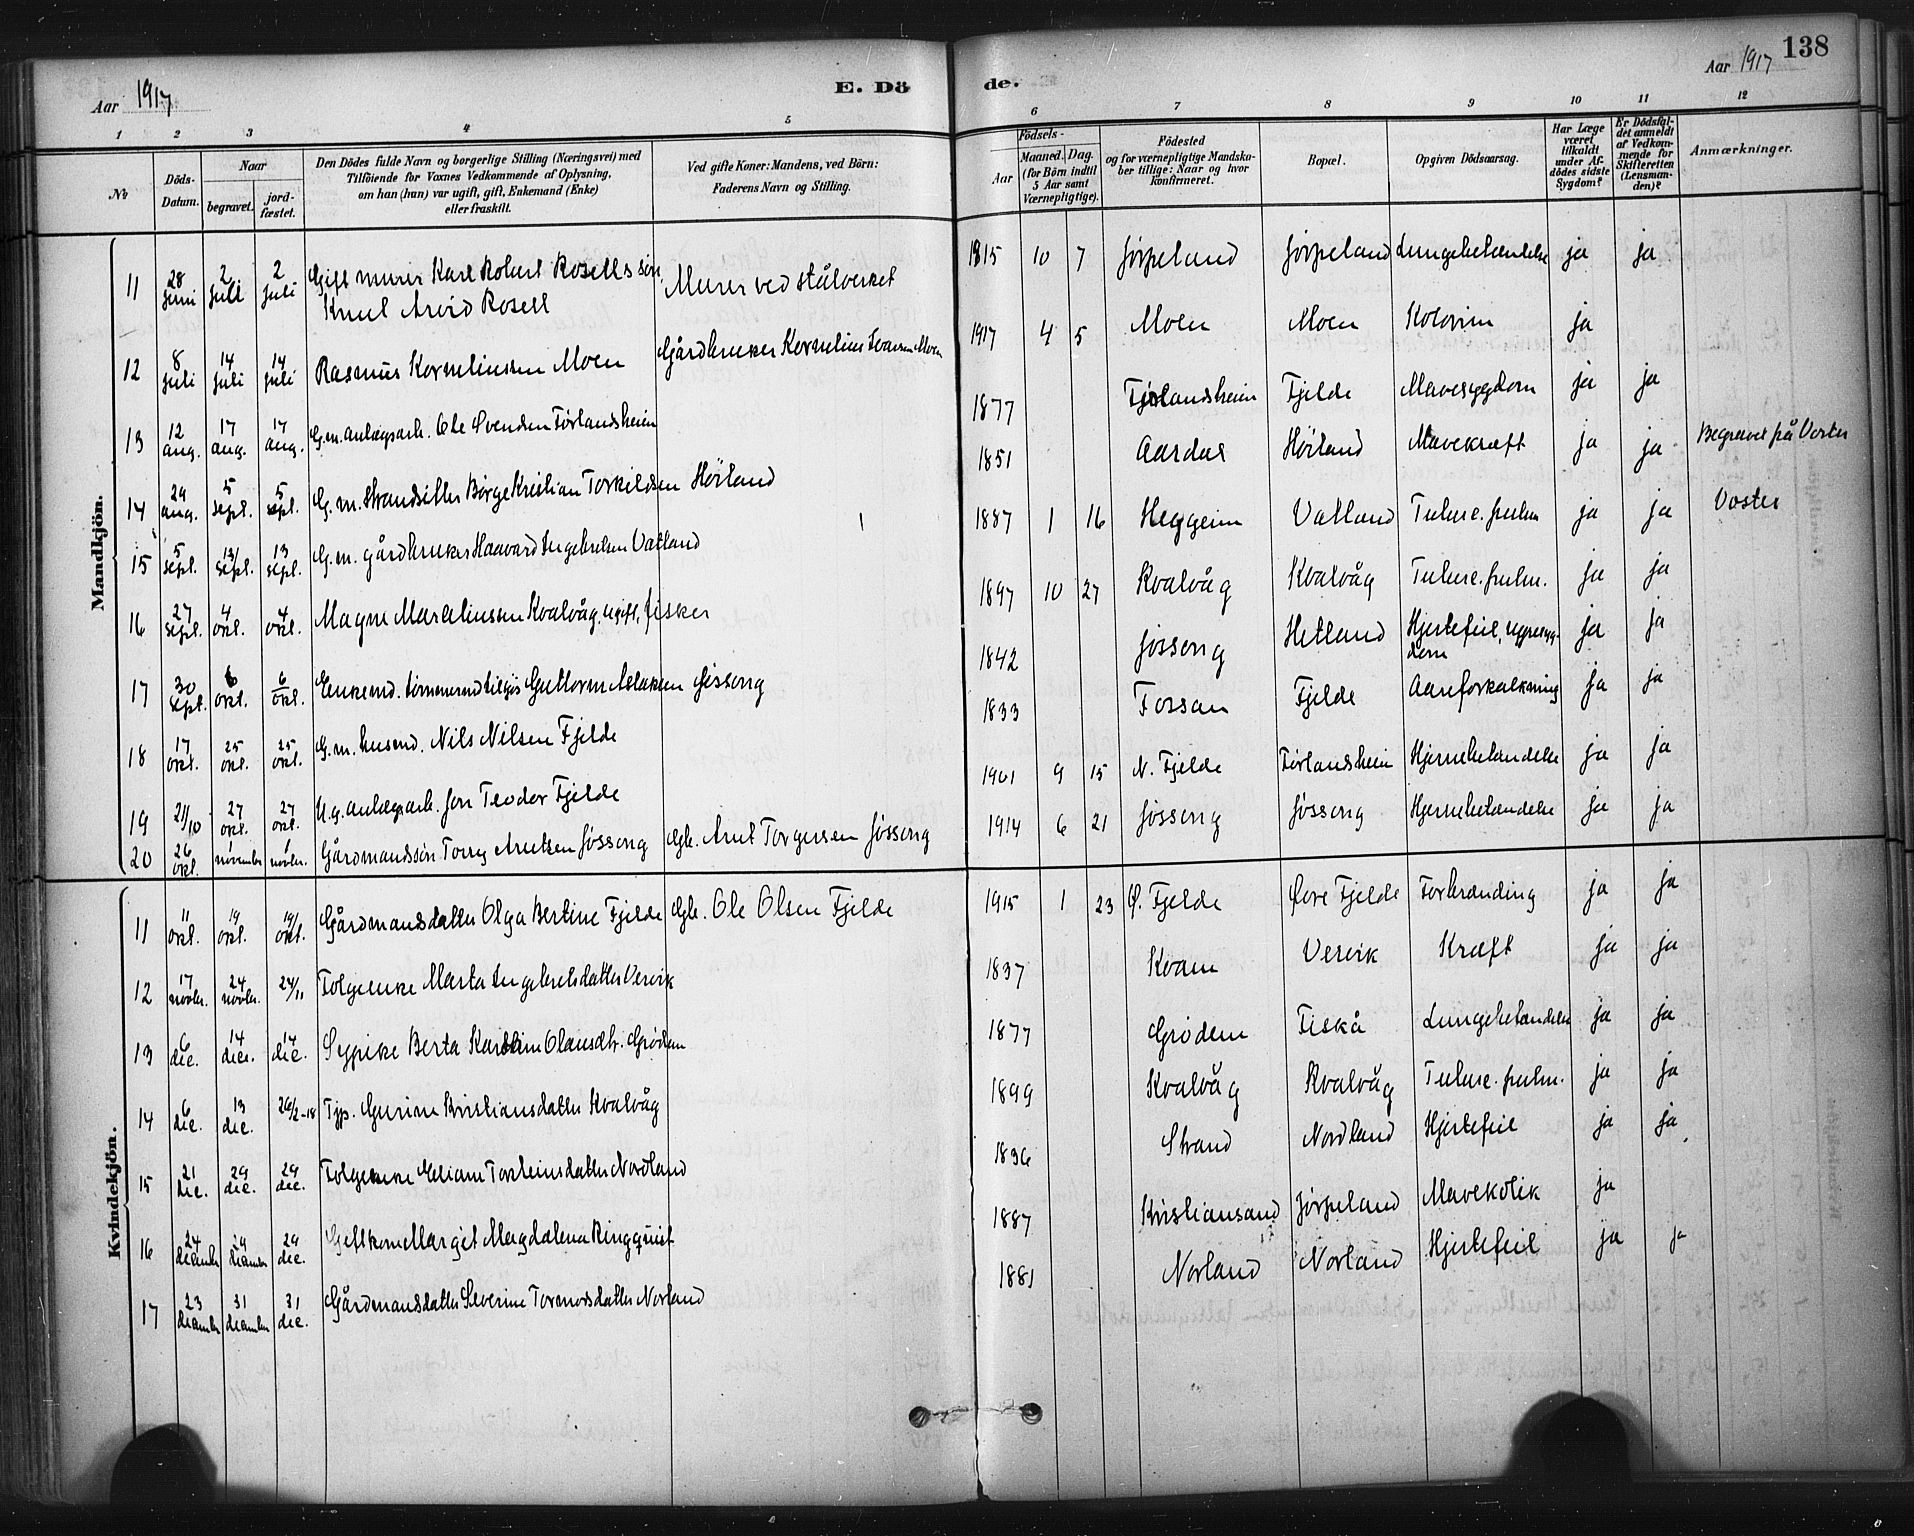 Aar 1917
E. Dö
de.
Aar 1917
138
1 2 3 4 5 6 7 8 9 10 11 12
№
Döds-Datum.
Naar
begravet.
jord-fæstet.
Den Dödes fulde Navn og borgerlige Stilling (Næringsvei) med
Tilföiende for Voxnes Vedkommende af Oplysning,
om han (hun) var ugift, gift, Enkemand (Enke)
eller fraskilt.
Ved gifte Koner: Mandens, ved Börn:
Faderens Navn og Stilling.
Födsels-
Aar
Maaned. Dag.
(for Börn indtil
5 Aar samt
Værnepligtige).
Födested
og for værnepligtige Mandska-
ber tillige: Naar og hvor
konfirmeret.
Bopæl.
Opgiven Dödsaarsag.
Har Læge
været
tilkaldt
under Af-
dödes sidste
Sygdom?
Er Dödsfal-
det anmeldt
af Vedkom-
mende for
Skifteretten
(Lensman-
den)?
Anmærkninger.
Mandkjön.
11 28 juni 2 juli 2 juli Gift murer Karl Robert Rosells søn, Knut Arvid Rosell Murer ved stålverket 1915 10 7 Jørpeland Jørpeland Lungebetændelse ja ja
12 8 juli 14 juli 14 juli Rasmus Korneliussen Moen Gårdbruker Kornelius Ivarsen Moen 1917 4 5 Moen Moen Kolorin ja
13 12 aug. 17 aug. 17 aug. G.m. anlægsarb. Ole Svendsen Tørlandsheien 1877 Tjørlandsheien Fjelde Mavesygdom ja ja
14 29 aug. 5 sept. 5 sept. G.m. Strandsitter Børge Kristian Torkildsen Höiland 1851 Aardal Höiland Mavekræft ja ja Begravet på Voster
15 5 sept. 13/ sept. 13 sept. G.m. gårdbruker Haavard Ingebretsen Vatland 1887 1 16 Heggeim Vatland Tuberc. pulm ja ja Voster
16 27 sept. 4 okt. 4 okt. Magne Mareliussen Kvalvåg, ugift, fisker 1897 10 27 Kvalvåg Kvalvåg Tuberc. pulm. ja ja
17 30 sept. 6 okt. 6 okt. Enkemd. tømmermd Guttorm Aslaksen Jøssong 1842 Jøssong Hetland Hjertefeil, nyresygdom ja ja
18 17 okt. 25 okt. 25 okt. G.m. husmd. Nils Nilsen Fjelde 1833 Fossan Fjelde Aareforkalkning ja ja
19 21/10 27 okt. 27 okt. U.g. anlægsarb. Jon Teodor Fjelde 1901 9 15 N. Fjelde Tørlandsheien Hjernebetændelse ja ja
20 26 okt. 1 november 1 novbr. Gårdmandssøn Torry Arntsen Jøssong Gbr. Arnt Torgersen Jøssong 1914 6 21 Jøssong Jøssong Hjernebetændelse ja ja
Kvindekjön.
11 11 okt. 19 okt. 19/ okt. Gårdmansdatter Olga Bertine Fjelde Gbr. Ole Olsen Fjelde 1915 1 23 Ø. Fjelde Øvre Fjelde Forbrænding ja ja
12 17 novbr. 24 novbr. 24/11 Folgeenke Marta Ingebretsdatter Vervik 1837 Kvam Vervik Kræft ja ja
13 6 dec. 14 dec. 14 dec. Sypike Berta Olausdtr. Grødem 1877 Grødem Fiskå Lungebetændelse ja ja
14 6 dec. 13 dec. 26/2-18 Tjp. Gurine Kristiansdatter Kvalvåg 1899 Kvalvåg Kvalvåg Tuberc. pulm. ja ja
15 21 dec. 29 dec. 29 dec. Folgeenke Torsteinsdatter Nordland 1836 Strand Nordland Hjertefeil ja ja
16 24 december 29 december 29 dec. Gift kone Marget Magdalena Ringquist 1887 Kristiansand Jørpeland Mavekolik ja
17 23 december 31 december 31 dec. Gårdmansdatter Severine Tormodsdatter Norland 1881 Norland Norland Hjertefeil ja ja